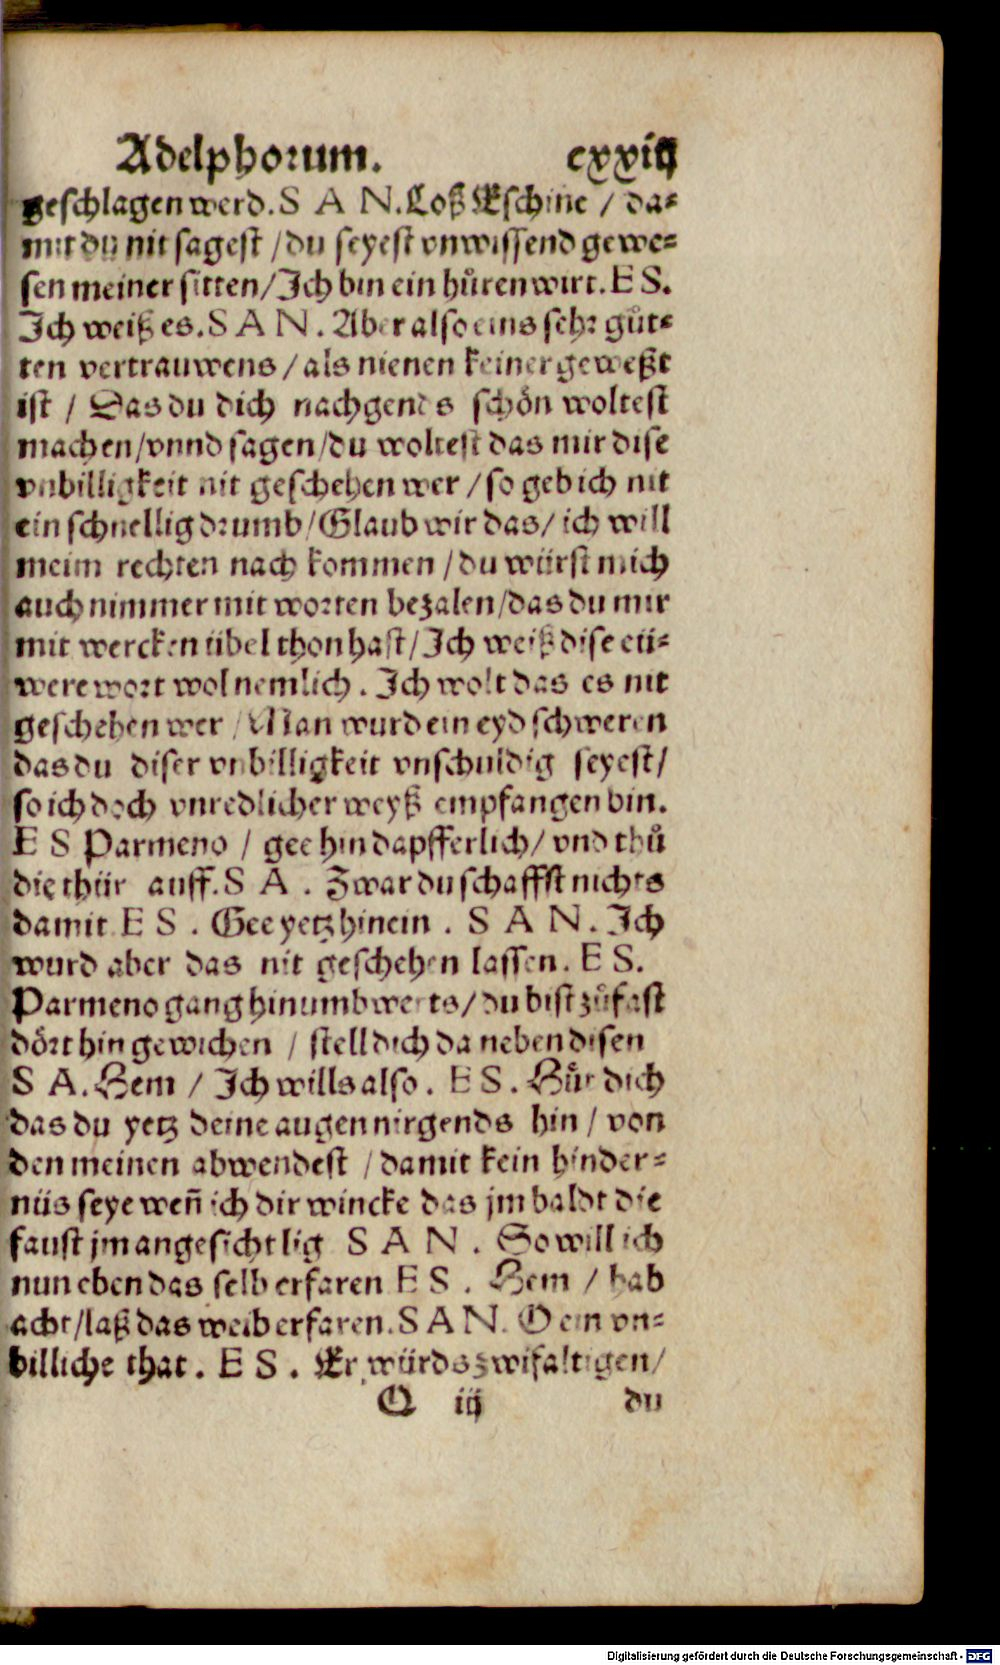 Adelphorum. cxxiij
geschlagen werd. S A N. Loß Eschine / da-
mit du nit sagest / du seyest vnwissend gewe-
sen meiner sitten / Ich bin ein hůrenwirt. E S.
Ich weiß es. S A N. Aber also eins sehr gůt-
ten vertrauwens / als nienen keiner geweßt
ist / Das du dich nachgends schön woltest
machen / vnnd sagen / du woltest das mir dise
vnbilligkeit nit geschehen wer / so geb ich nit
ein schnellig drumb / Glaub wir das / ich will
meim rechten nach kommen / du würst mich
auch nimmer mit worten bezalen / das du mir
mit wercken übel thon hast / Ich weiß dise eü-
were wort wol nemlich. Ich wolt das es nit
geschehen wer / Man wurd ein eyd schweren
das du diser vnbilligkeit vnschuldig seyest /
so ich doch vnredlicher weyß empfangen bin.
E S Parmeno / gee hin dapfferlich / vnd thů
die thür auff. S A. Zwar du schaffst nichts
damit E S. Gee yetz hinein. S A N. Ich
wurd aber das nit geschehen lassen. E S.
Parmeno gang hinumbwerts / du bist zůfast
dört hin gewichen / stell dich da neben disen
S A. Hem / Ich wills also. E S. Hůt dich
das du yetz deine augen nirgends hin / von
den meinen abwendest / damit kein hinder-
nüs seye weñ ich dir wincke das jm baldt die
faust jm angesicht lig S A N. So will ich
nun eben das selb erfaren E S. Hem / hab
acht / laß das weib erfaren. S A N. O ein vn-
billiche that. E S. Er würds zwifaltigen /
Q iij du
Digitalisierung gefördert durch die Deutsche Forschungsgemeinschaft - DFG